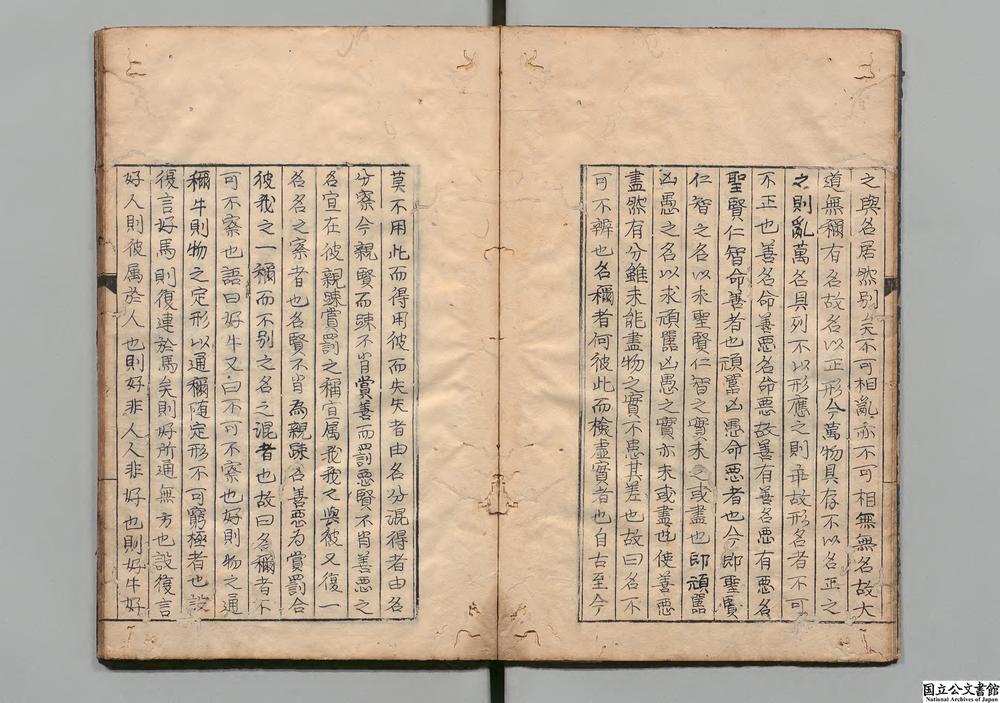 之與名居然別矣不可相亂亦不可相無無名故大
道無稱有名故名以正形今萬物具存不以名正之
之則亂萬名具列不以形應之則乖故形名者不可
不正也善名命善惡名命惡故善有善名惡有惡名
聖賢仁智命善者也頑嚚凶愚命惡者也今即聖賢
仁智之名以求聖賢仁智之實未之或盡也即頑嚚
凶愚之名以求頑嚚凶愚之實亦未或盡也使善惡
盡然有分雖未能盡物之實不患其差也故曰名不
可不辨也名稱者何彼此而檢虛實者也自古至今
莫不用此而得用彼而失失者由名分混得者由名
分察今親賢而疎不肖賞善而罰惡賢不肖善惡之
名宜在彼親疎賞罰之稱宜属我我之與彼又復一
名名之察者也名賢不肖為親疎名善惡為賞罰合
彼我之一稱而不别之名之混者也故曰名稱者不
可不察也語曰好牛又曰不可不察也好則物之通
稱牛則物之定形以通稱随定形不可窮極者也設
復言好馬則復連於馬矣則好所通無方也設復言
好人則彼属於人也則好非人人非好也則好牛好
国立公文書館
National Archives of Japan